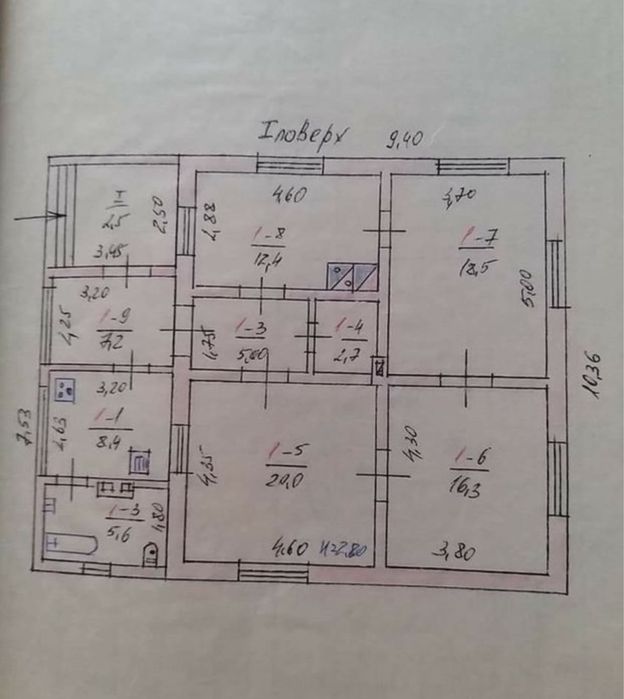 І поверх 9,40
I
2,5
2,50
3,45
4,60
2,88
1-8
12,4
3,70
1-7
18,5
5,00
3,20
2,25
1-9
7,2
1,75
1-3
5,00
1-4
2,7
10,36
7,53
3,20
2,63
1-1
8,4
4,35
1-5
20,0
4,30
1-6
16,3
1-3
5,6
1,80
4,60
H=2,80
3,80